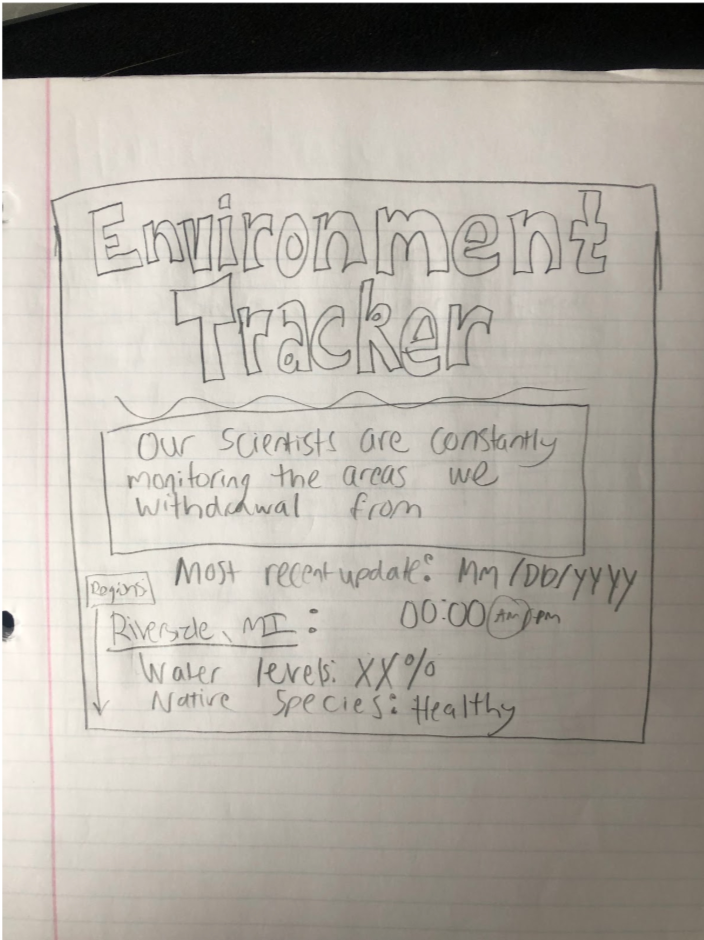 Environment
Tracker
Our scientists are constantly
monitoring the areas we
withdrawal from
Most recent update: MM/DD/YYYY
Regions
00:00 AM/PM
Riverside, MI:
Water levels: XX%
Native Species: Healthy